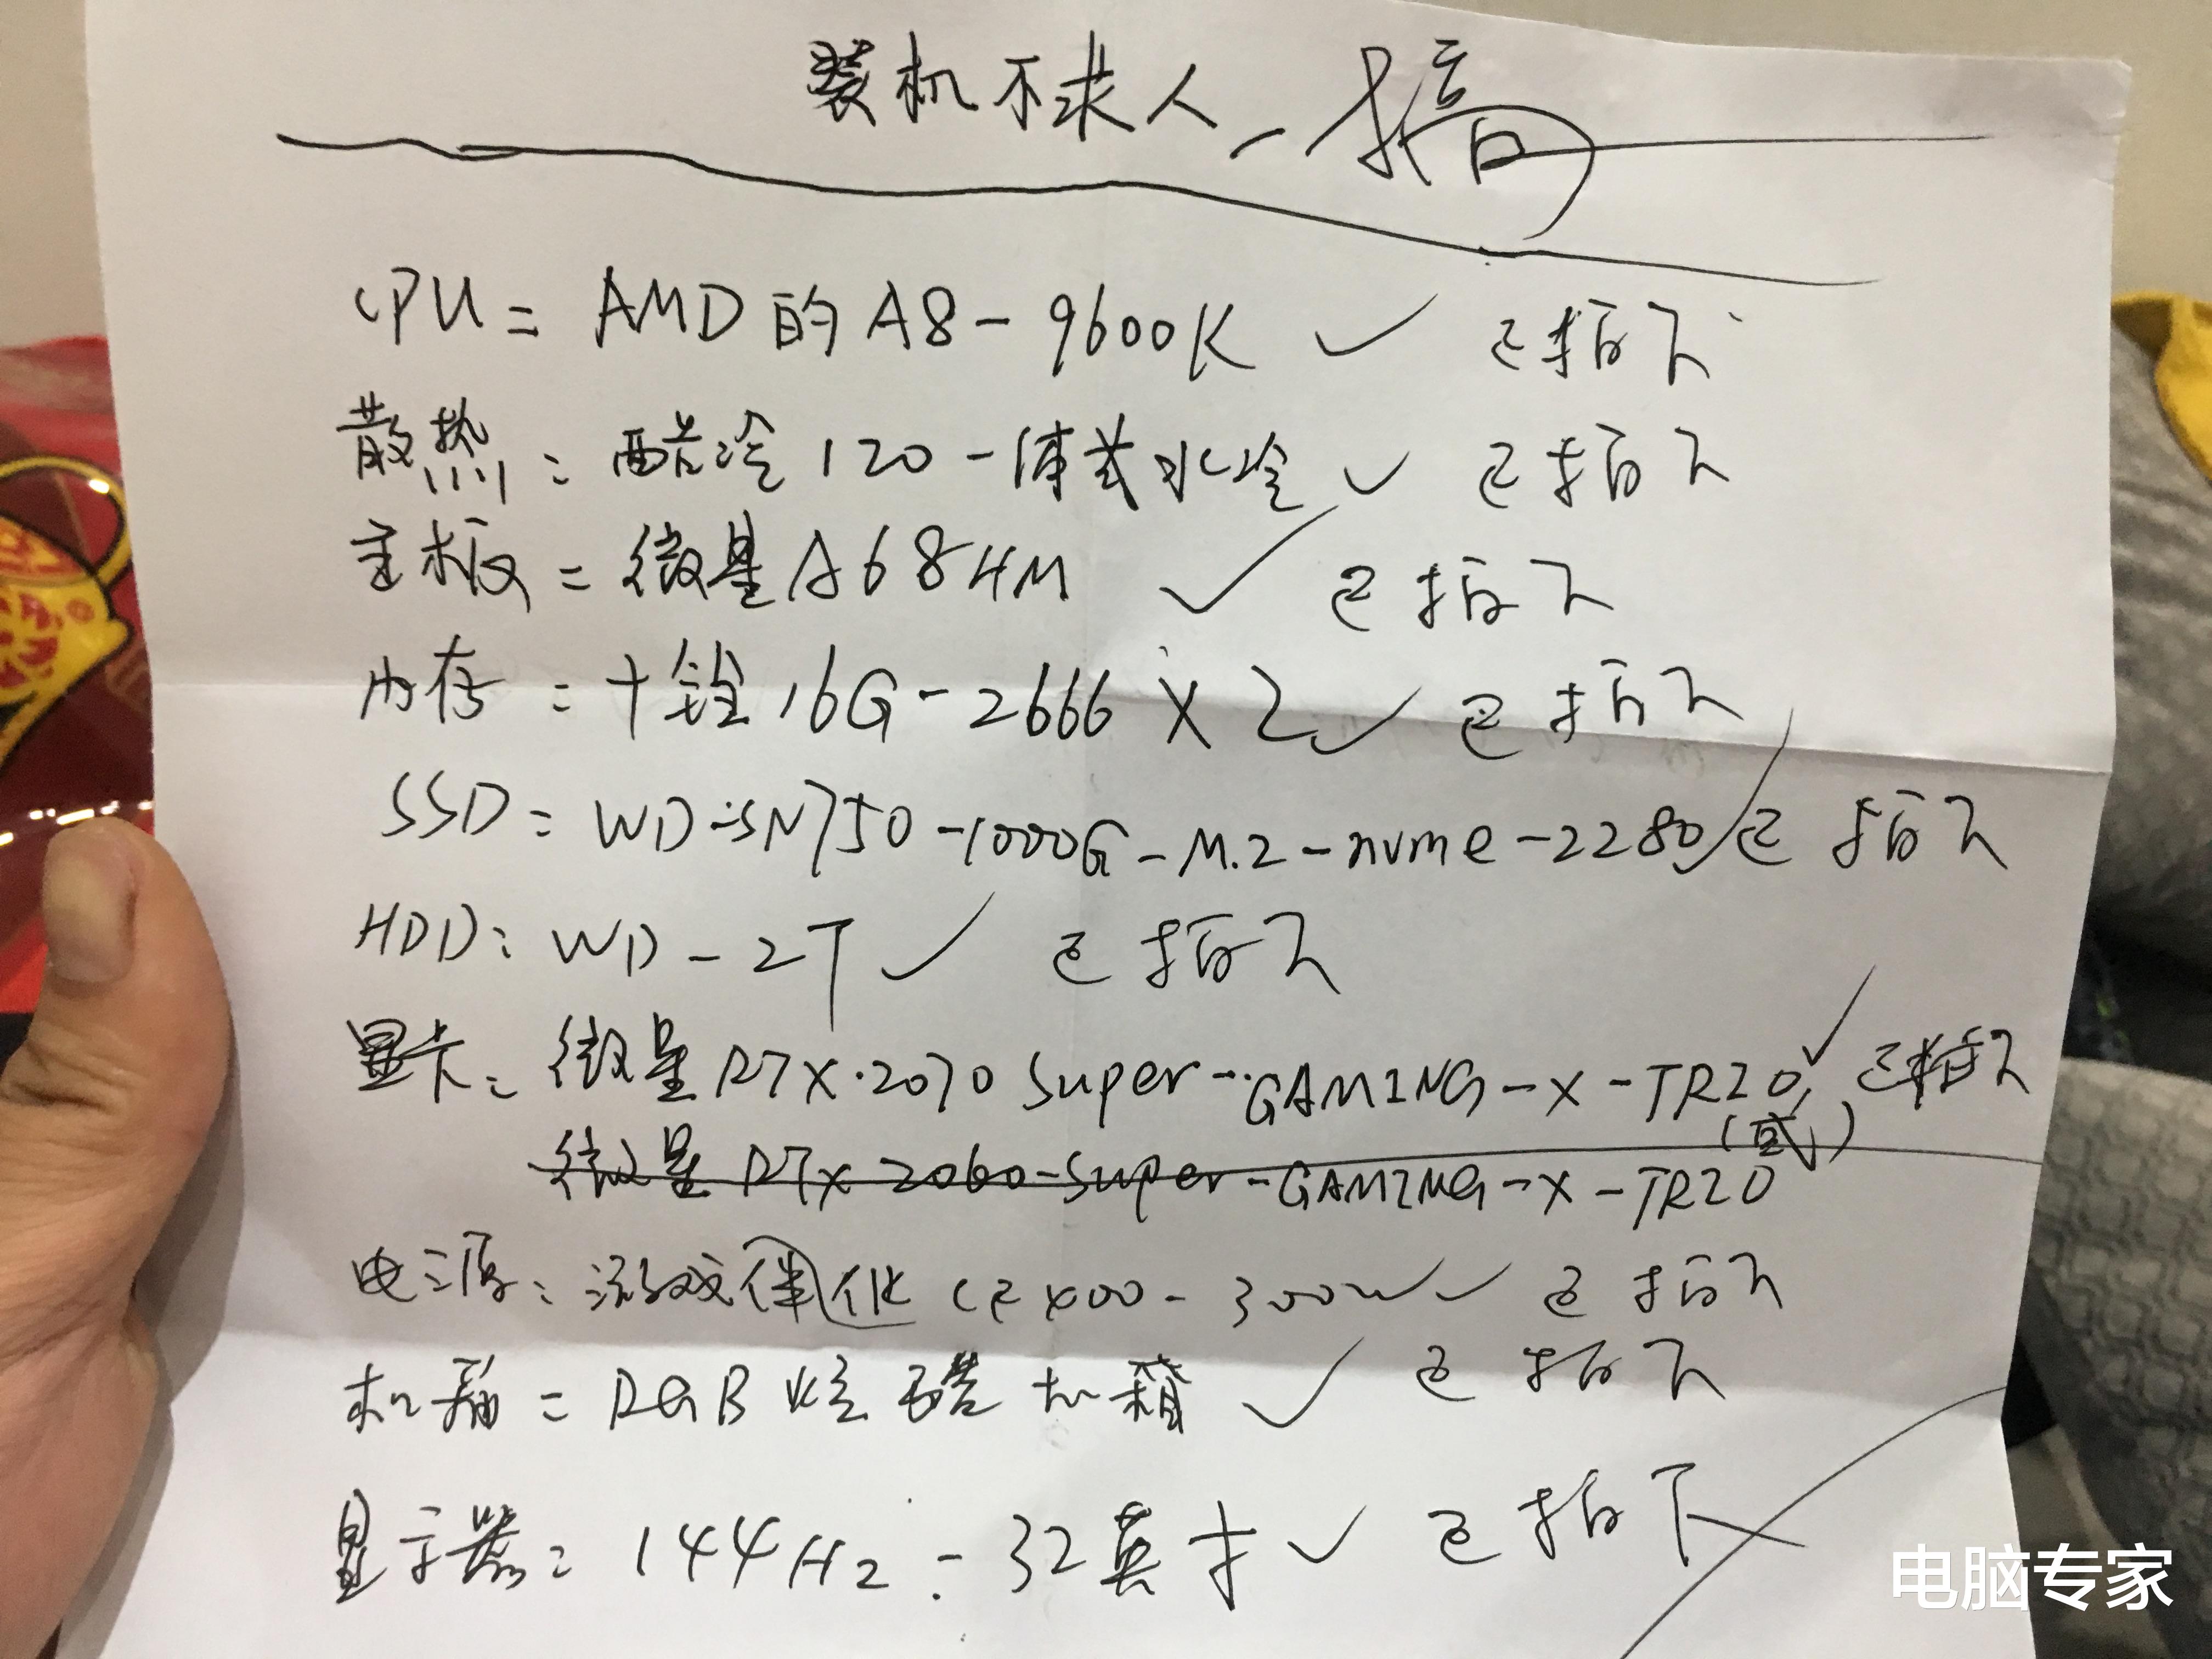 装机不求人,搞
CPU = AMD的A8-9600K ✓ 已拍下
散热 = 酷冷120一体式水冷 ✓ 已拍下
主板 = 微星A68HM ✓ 已拍下
内存 = 十铨16G-2666 X 2 ✓ 已拍下
SSD = WD-SN750-1000G-M.2-nvme-2280 ✓ 已拍下
HDD: WD-2T ✓ 已拍下
显卡 = 微星RTX·2070 super-GAMING-X-TRIO ✓ 已拍下
(或)
微星RTX 2060-super-GAMING-X-TRIO
电源: 游戏伴 400-300W ✓ 已拍下
机箱 = RGB炫酷机箱 ✓ 已拍下
显示器 = 144Hz-32英寸 ✓ 已拍下
电脑专家